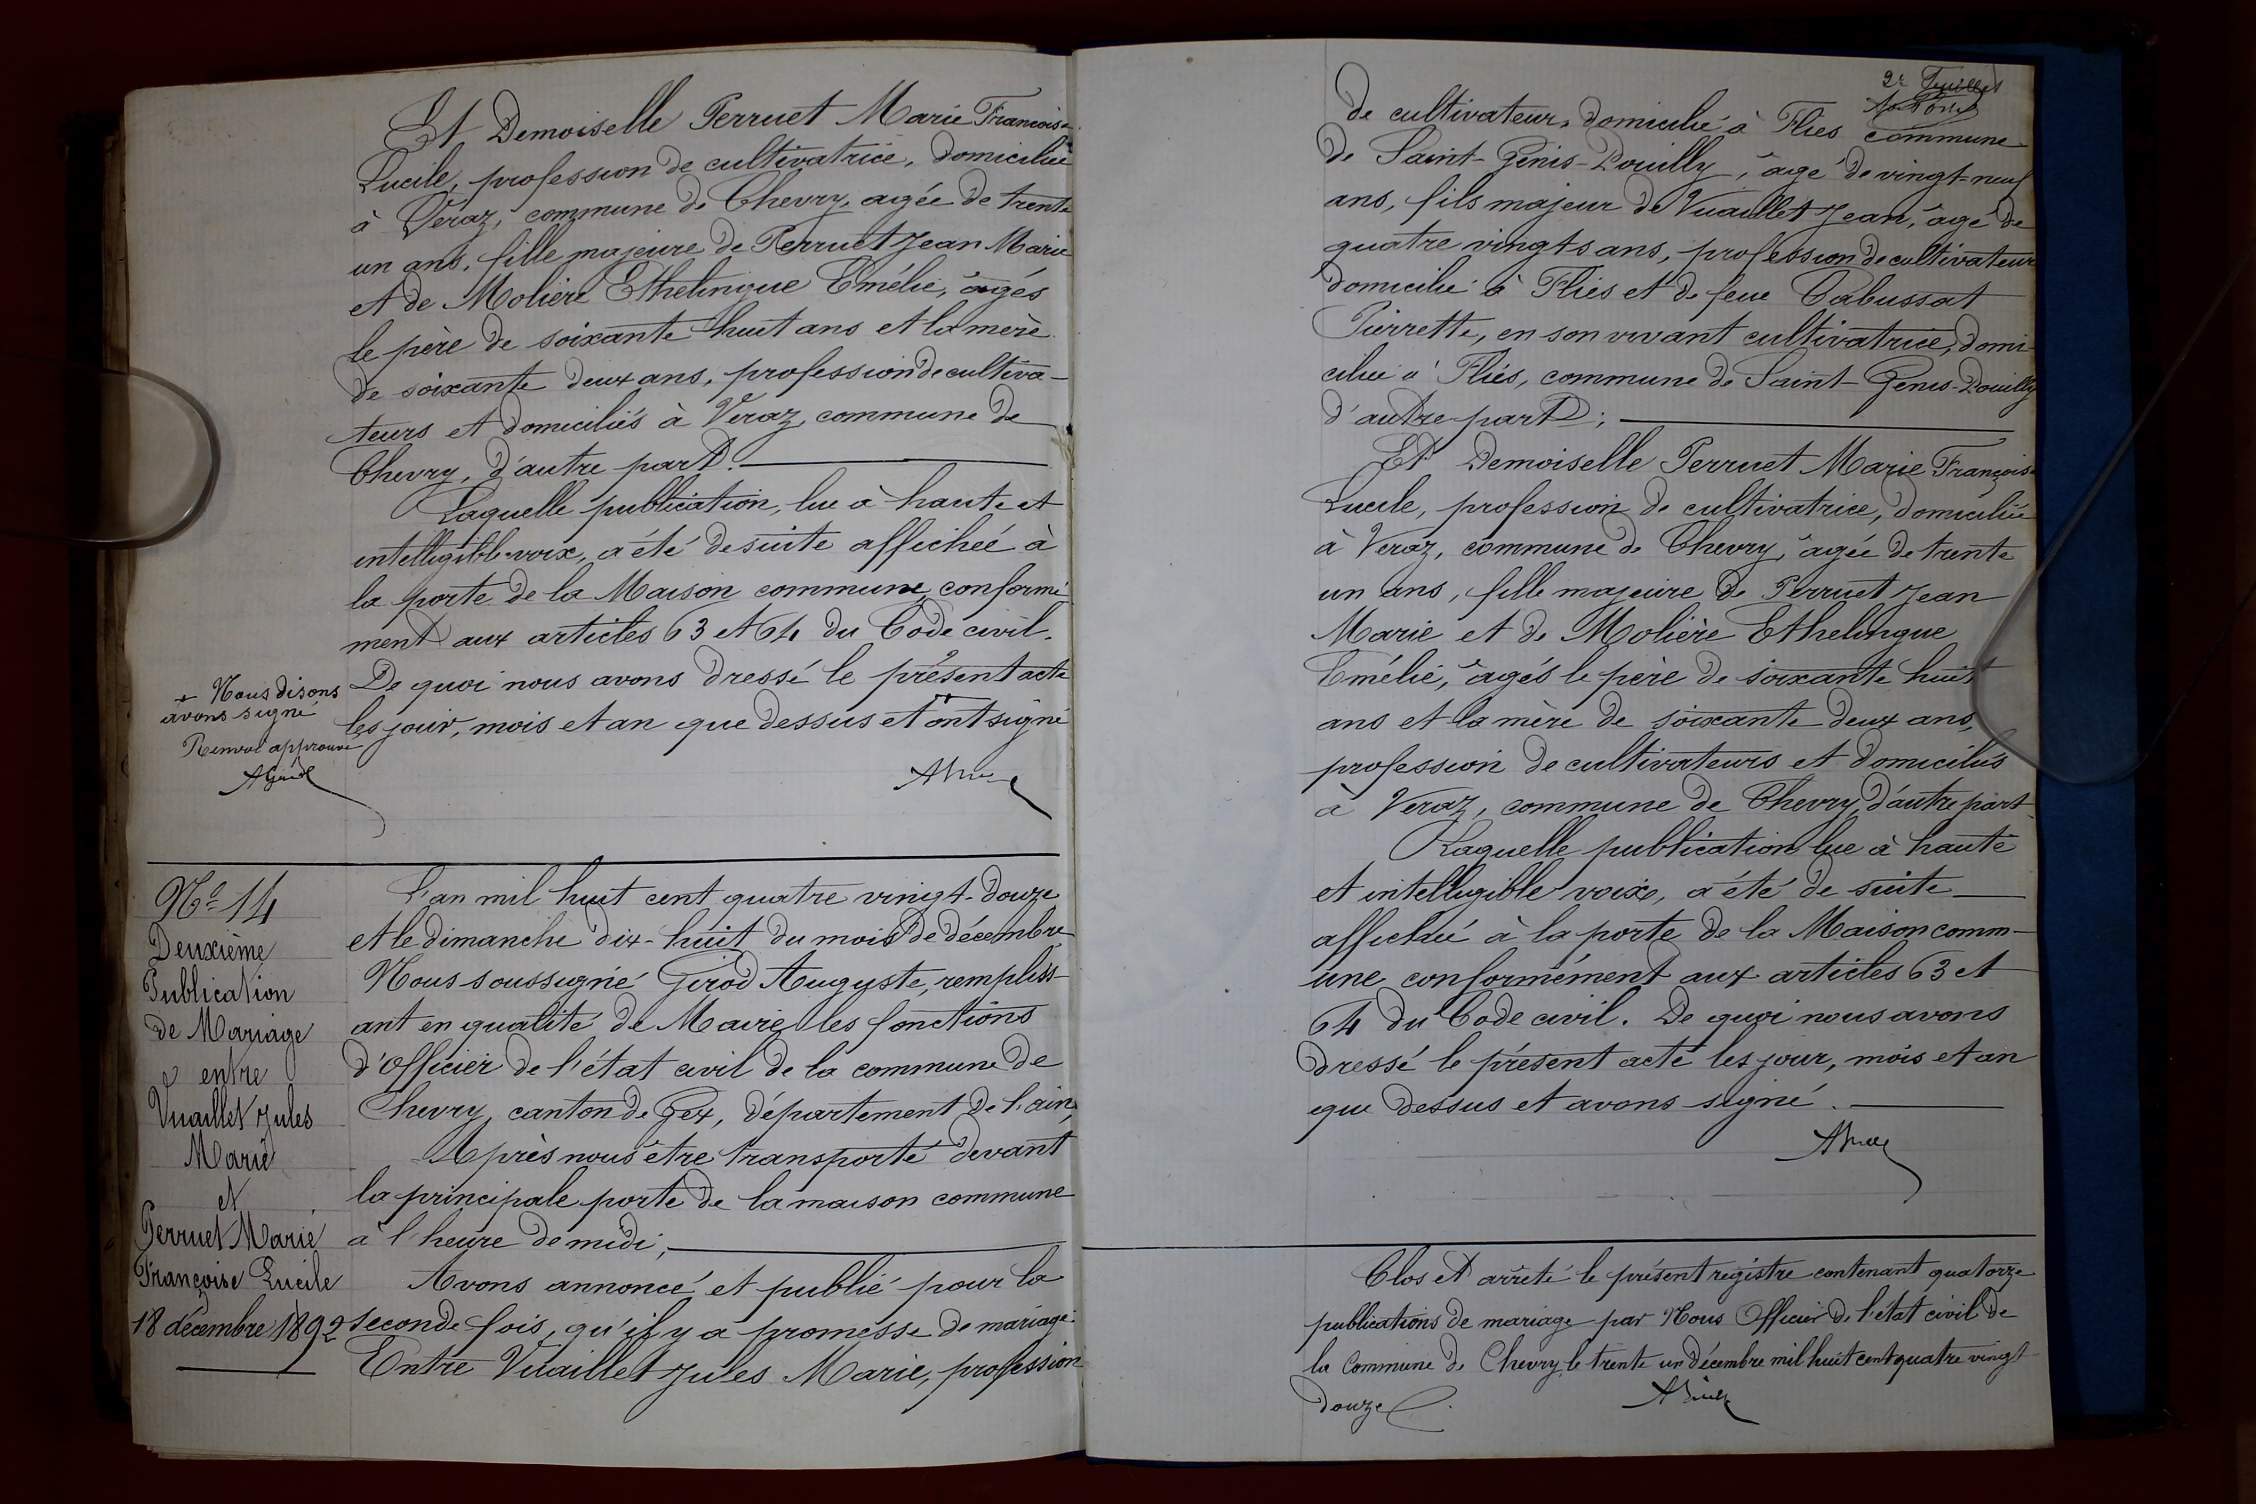 Et Demoiselle Perruet Marie Françoise
Lucile, profession de cultivatrice, domiciliée
à Véraz, commune de Chevry, agée de trente
un ans, fille majeure de Perruet Jean Marie
et de Molière Ethelingue Emélie, âgés
le père de soixante huit ans et la mère
de soixante deux ans, profession de cultiva-
teurs et domiciliés à Veraz, commune de
Chevry, d'autre part.
Laquelle publication, lue à haute et
intelligible voix, a été de suite affichée à
la porte de la Maison commune, conformé
ment aux articles 63 et 64 du Code civil.
De quoi nous avons dressé le présent acte
les jour, mois et an que dessus et ont signé
+ Nous disons
avons signé
Renvoi approuvé
AGirod
Nº 14
Deuxième
Publication
de Mariage
entre
Vuaillet Jules
Marie
et
Perruet Marie
Françoise Lucile
18 décembre 1892
L'an mil huit cent quatre vingt-douze
et le dimanche dix-huit du mois de décembre
Nous soussigné Girod Auguste, rempliss-
ant en qualité de Maire les fonctions
d'Officier de l'état civil de la commune de
Chevry, canton de Gex, département de l'ain,
Après nous être transporté devant
la principale porte de la maison commune
à l'heure de midi,
Avons annoncé et publié pour la
seconde fois, qu'il y a promesse de mariage:
Entre Vuaillet Jules Marie, profession
2e Feuillet
de cultivateur, domicilié à Flies commune
de Saint-Genis-Pouilly, âgé de vingt-neuf
ans, fils majeur de Vuaillet Jean, âgé de
quatre vingts ans, profession de cultivateur
domicilié à Flies et de feue Cabussat
Pierrette, en son vivant cultivatrice, domi-
ciliée à Fliés, commune de Saint-Genis-Pouilly
d'autre part;
Et Demoiselle Perruet Marie Françoise
Lucile, profession de cultivatrice, domiciliée
à Veraz, commune de Chevry, âgée de trente
un ans, fille majeure de Perruet Jean
Marie et de Molière Ethelingue
Emélie, âgés le père de soixante huit
ans et la mère de soixante deux ans,
profession de cultivateurs et domiciliés
à Veraz, commune de Chevry, d'autre part.
Laquelle publication lue à haute
et intelligible voix, a été de suite
affichée à la porte de la Maison comm-
une conformément aux articles 63 et
64 du Code civil. De quoi nous avons
dressé le présent acte les jour, mois et an
que dessus et avons signé.
Clos et arrêté le présent registre contenant quatorze
publications de mariage par Nous Officier de l'état civil de
la Commune de Chevry, le trente un décembre mil huit cent quatre vingt
douze.